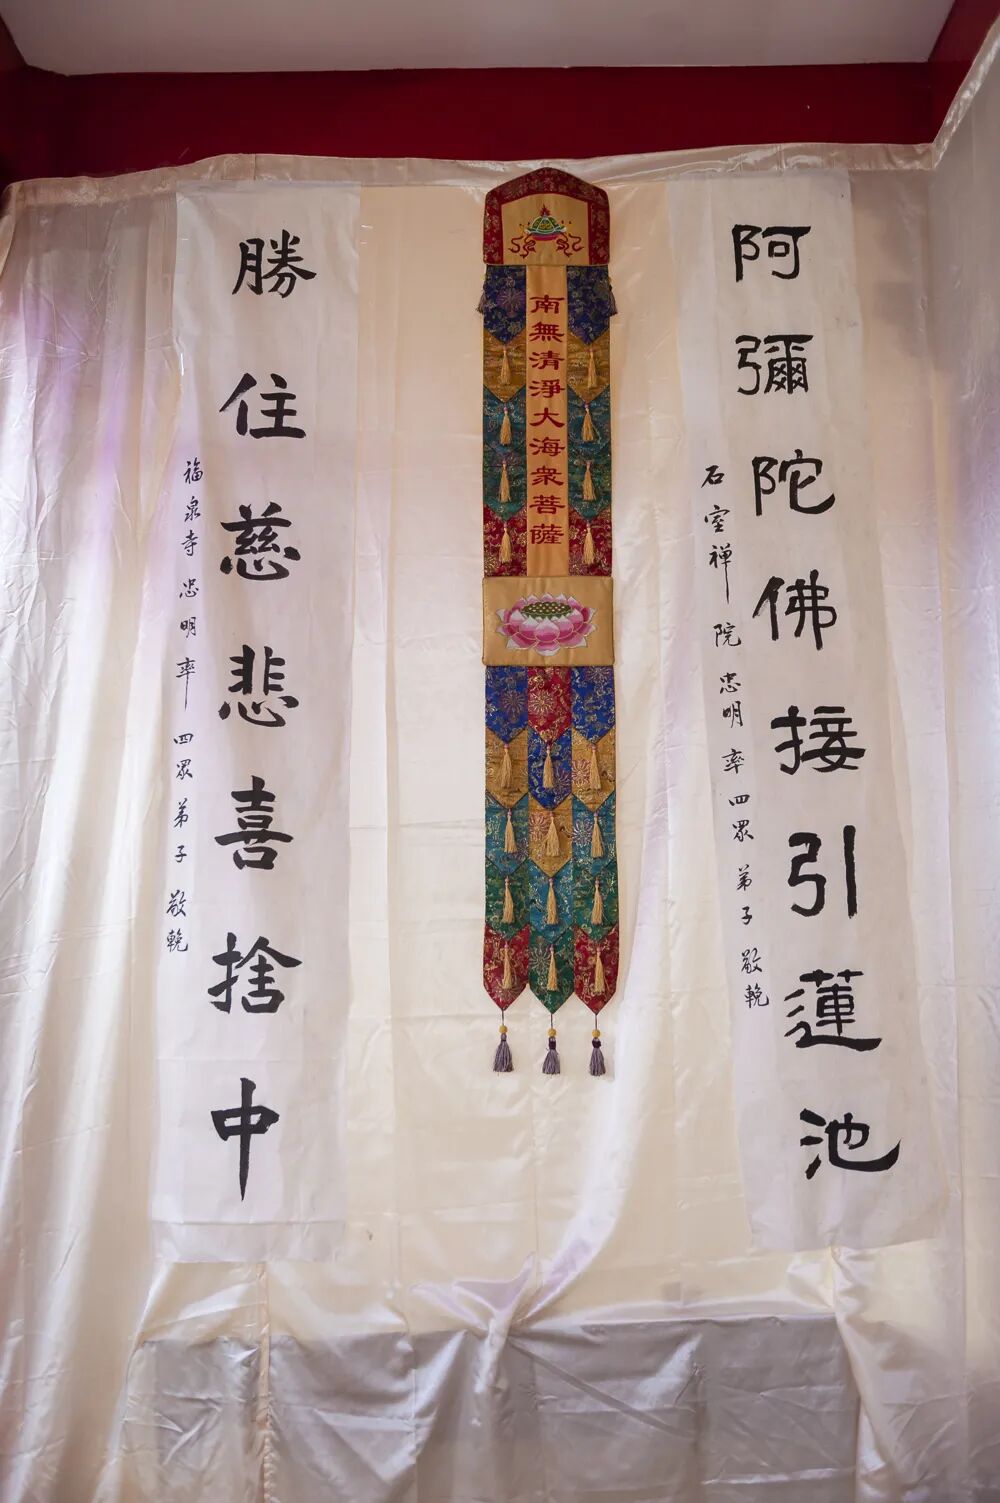 阿彌陀佛接引蓮池
石室禅院忠明率四眾弟子敬輓
南無清淨大海衆菩薩
勝住慈悲喜捨中
福泉寺忠明率四眾弟子敬輓